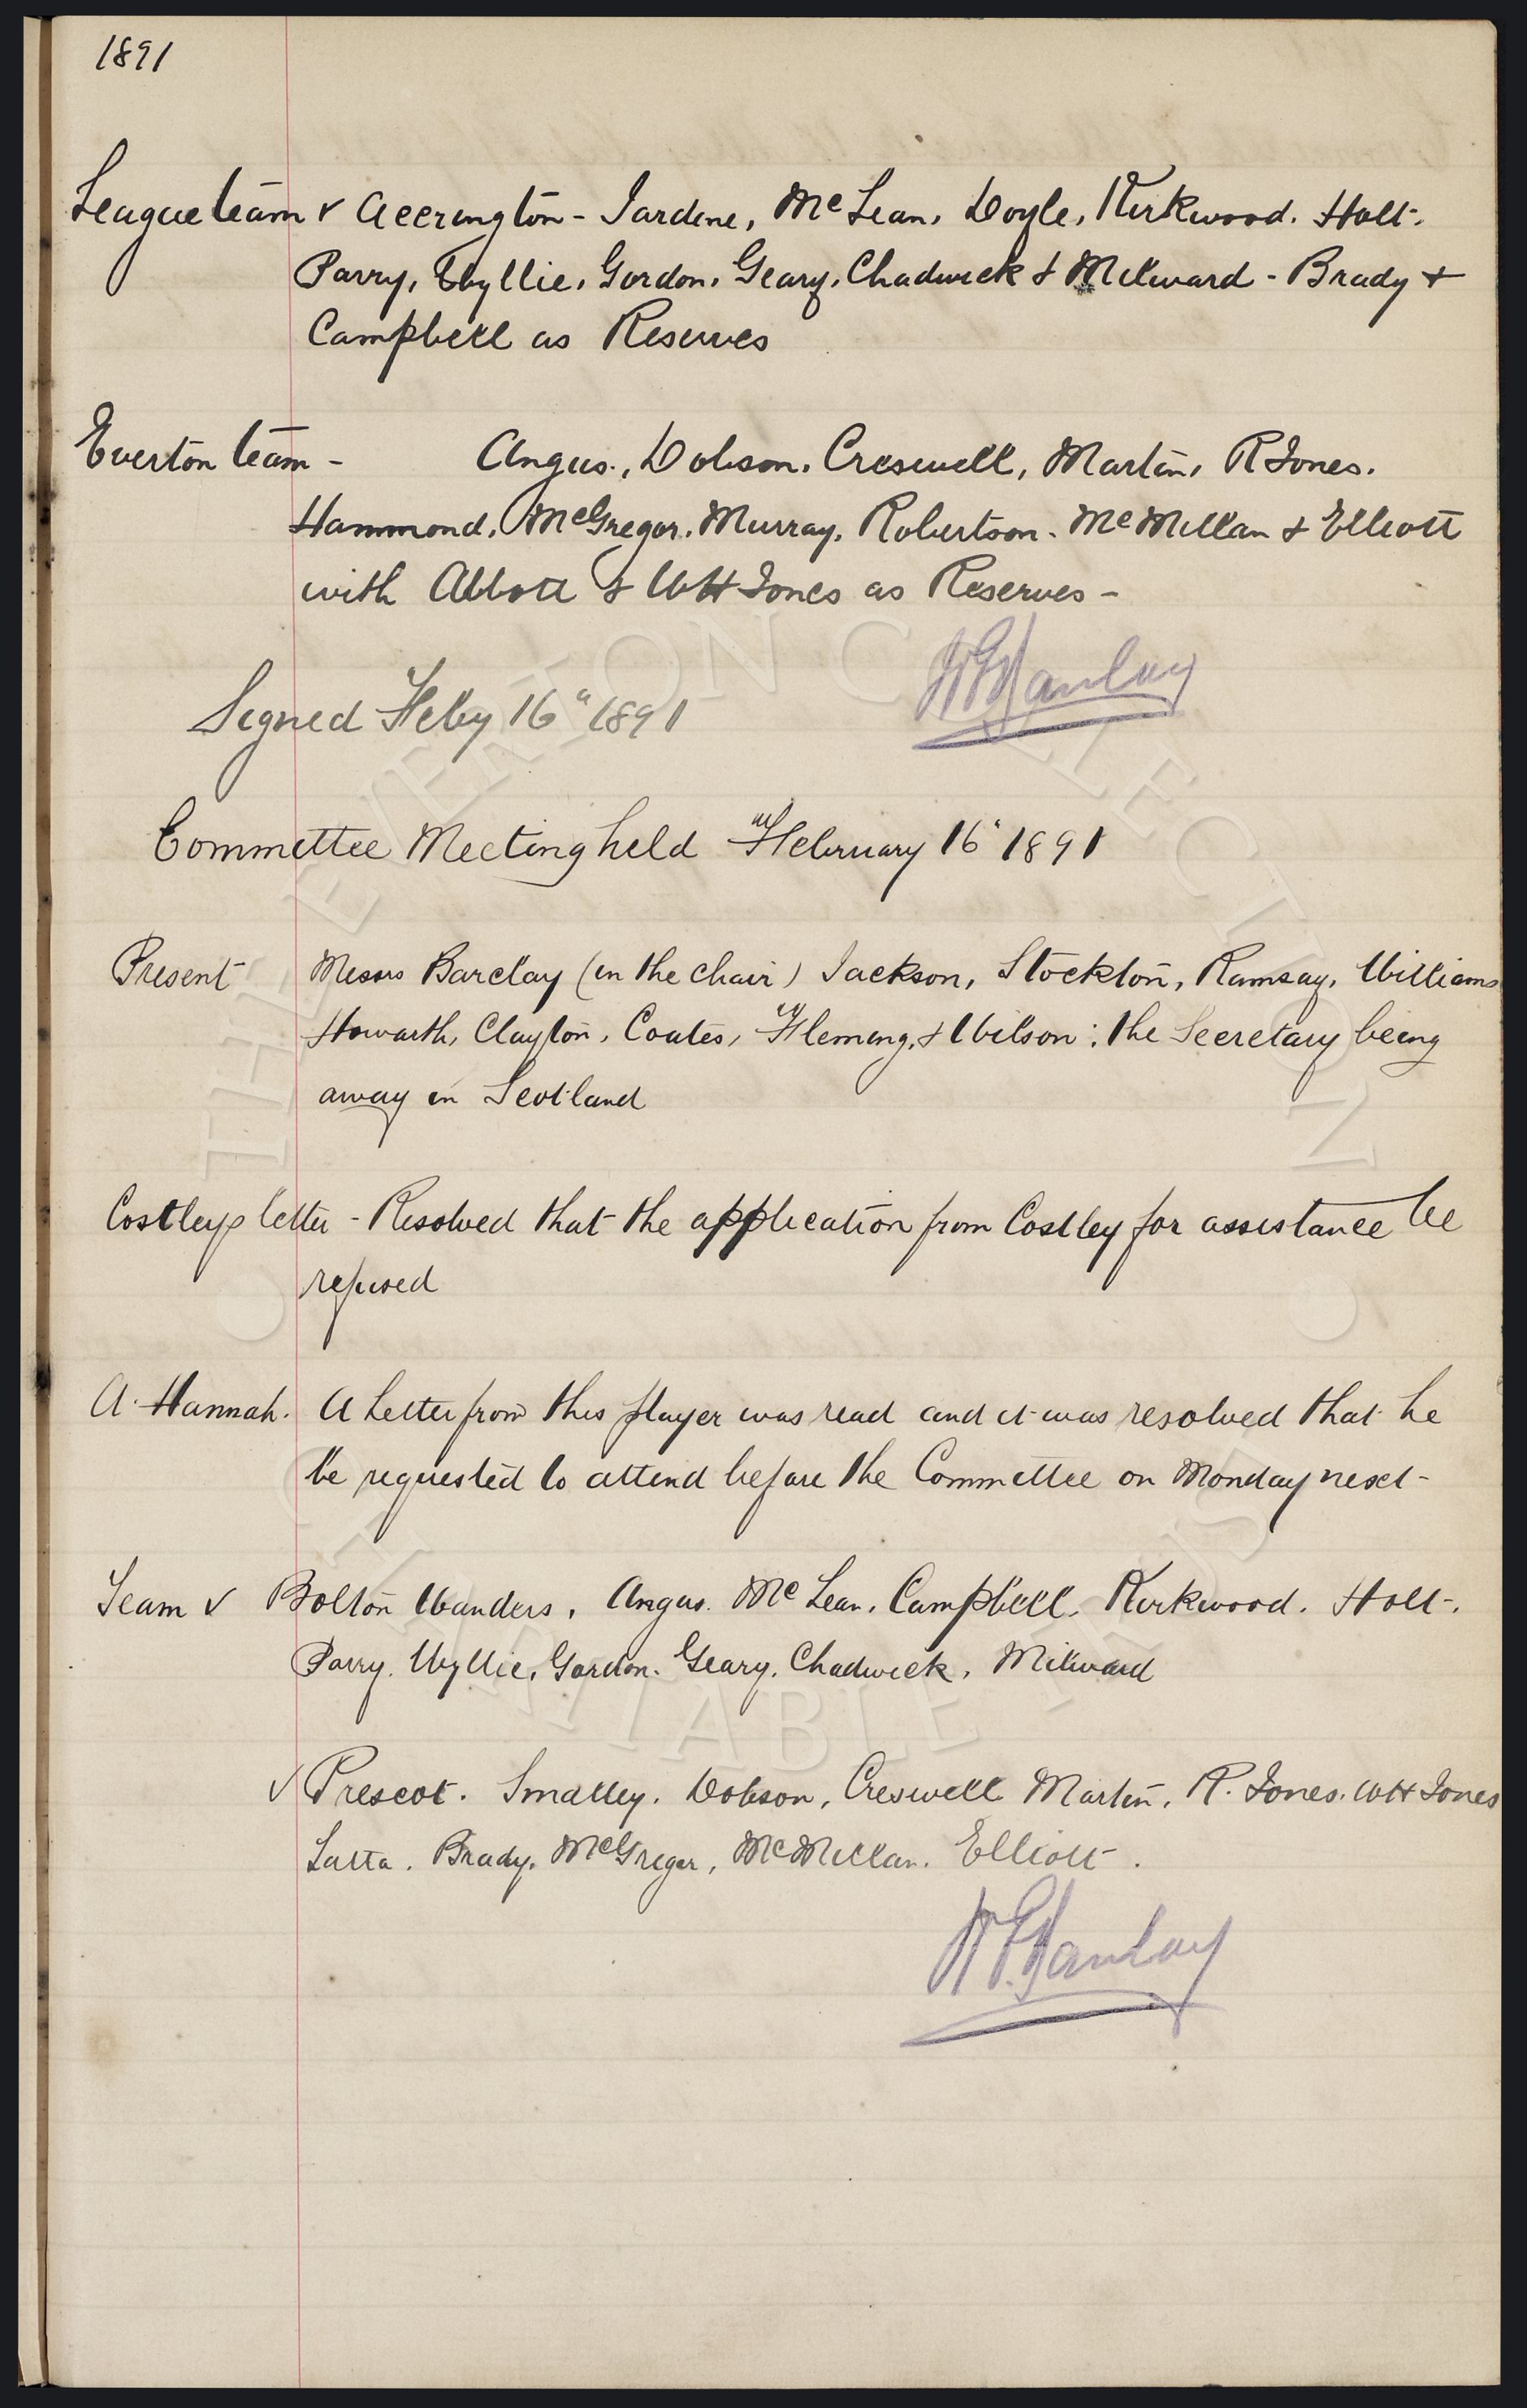 1891
League team v Accrington - Jardine, McLean, Doyle, Kirkwood. Holt.
Parry, Wyllie, Gordon, Geary, Chadwick & Milward - Brady &
Campbell as Reserves
Everton team - Angus., Dobson, Creswell, Martin, R Jones.
Hammond, McGregor, Murray, Robertson. McMillan & Elliott
with Abbott & WH Jones as Reserves -
Signed Feby 16" 1891 WE Barclay
Committee Meeting held February 16" 1891
Present Messrs Barclay (in the chair) Jackson, Stockton, Ramsay, Williams
Howarth, Clayton, Coates, Fleming, & Wilson; the Secretary being
away in Scotland
Costleys letter - Resolved that the application from Costley for assistance be
refused
A. Hannah. A Letter from this player was read and it was resolved that he
be requested to attend before the Committee on Monday next -
Team v Bolton Wanders, Angus. McLean, Campbell, Kirkwood. Holt.
Parry. Wyllie, Gordon. Geary. Chadwick, Milward
v Prescot. Smalley. Dobson, Creswell Martin, R. Jones. WH Jones
Latta. Brady. McGregor, McMillan. Elliott.
WE Barclay
THE EVERTON COLLECTION
CHARITABLE TRUST